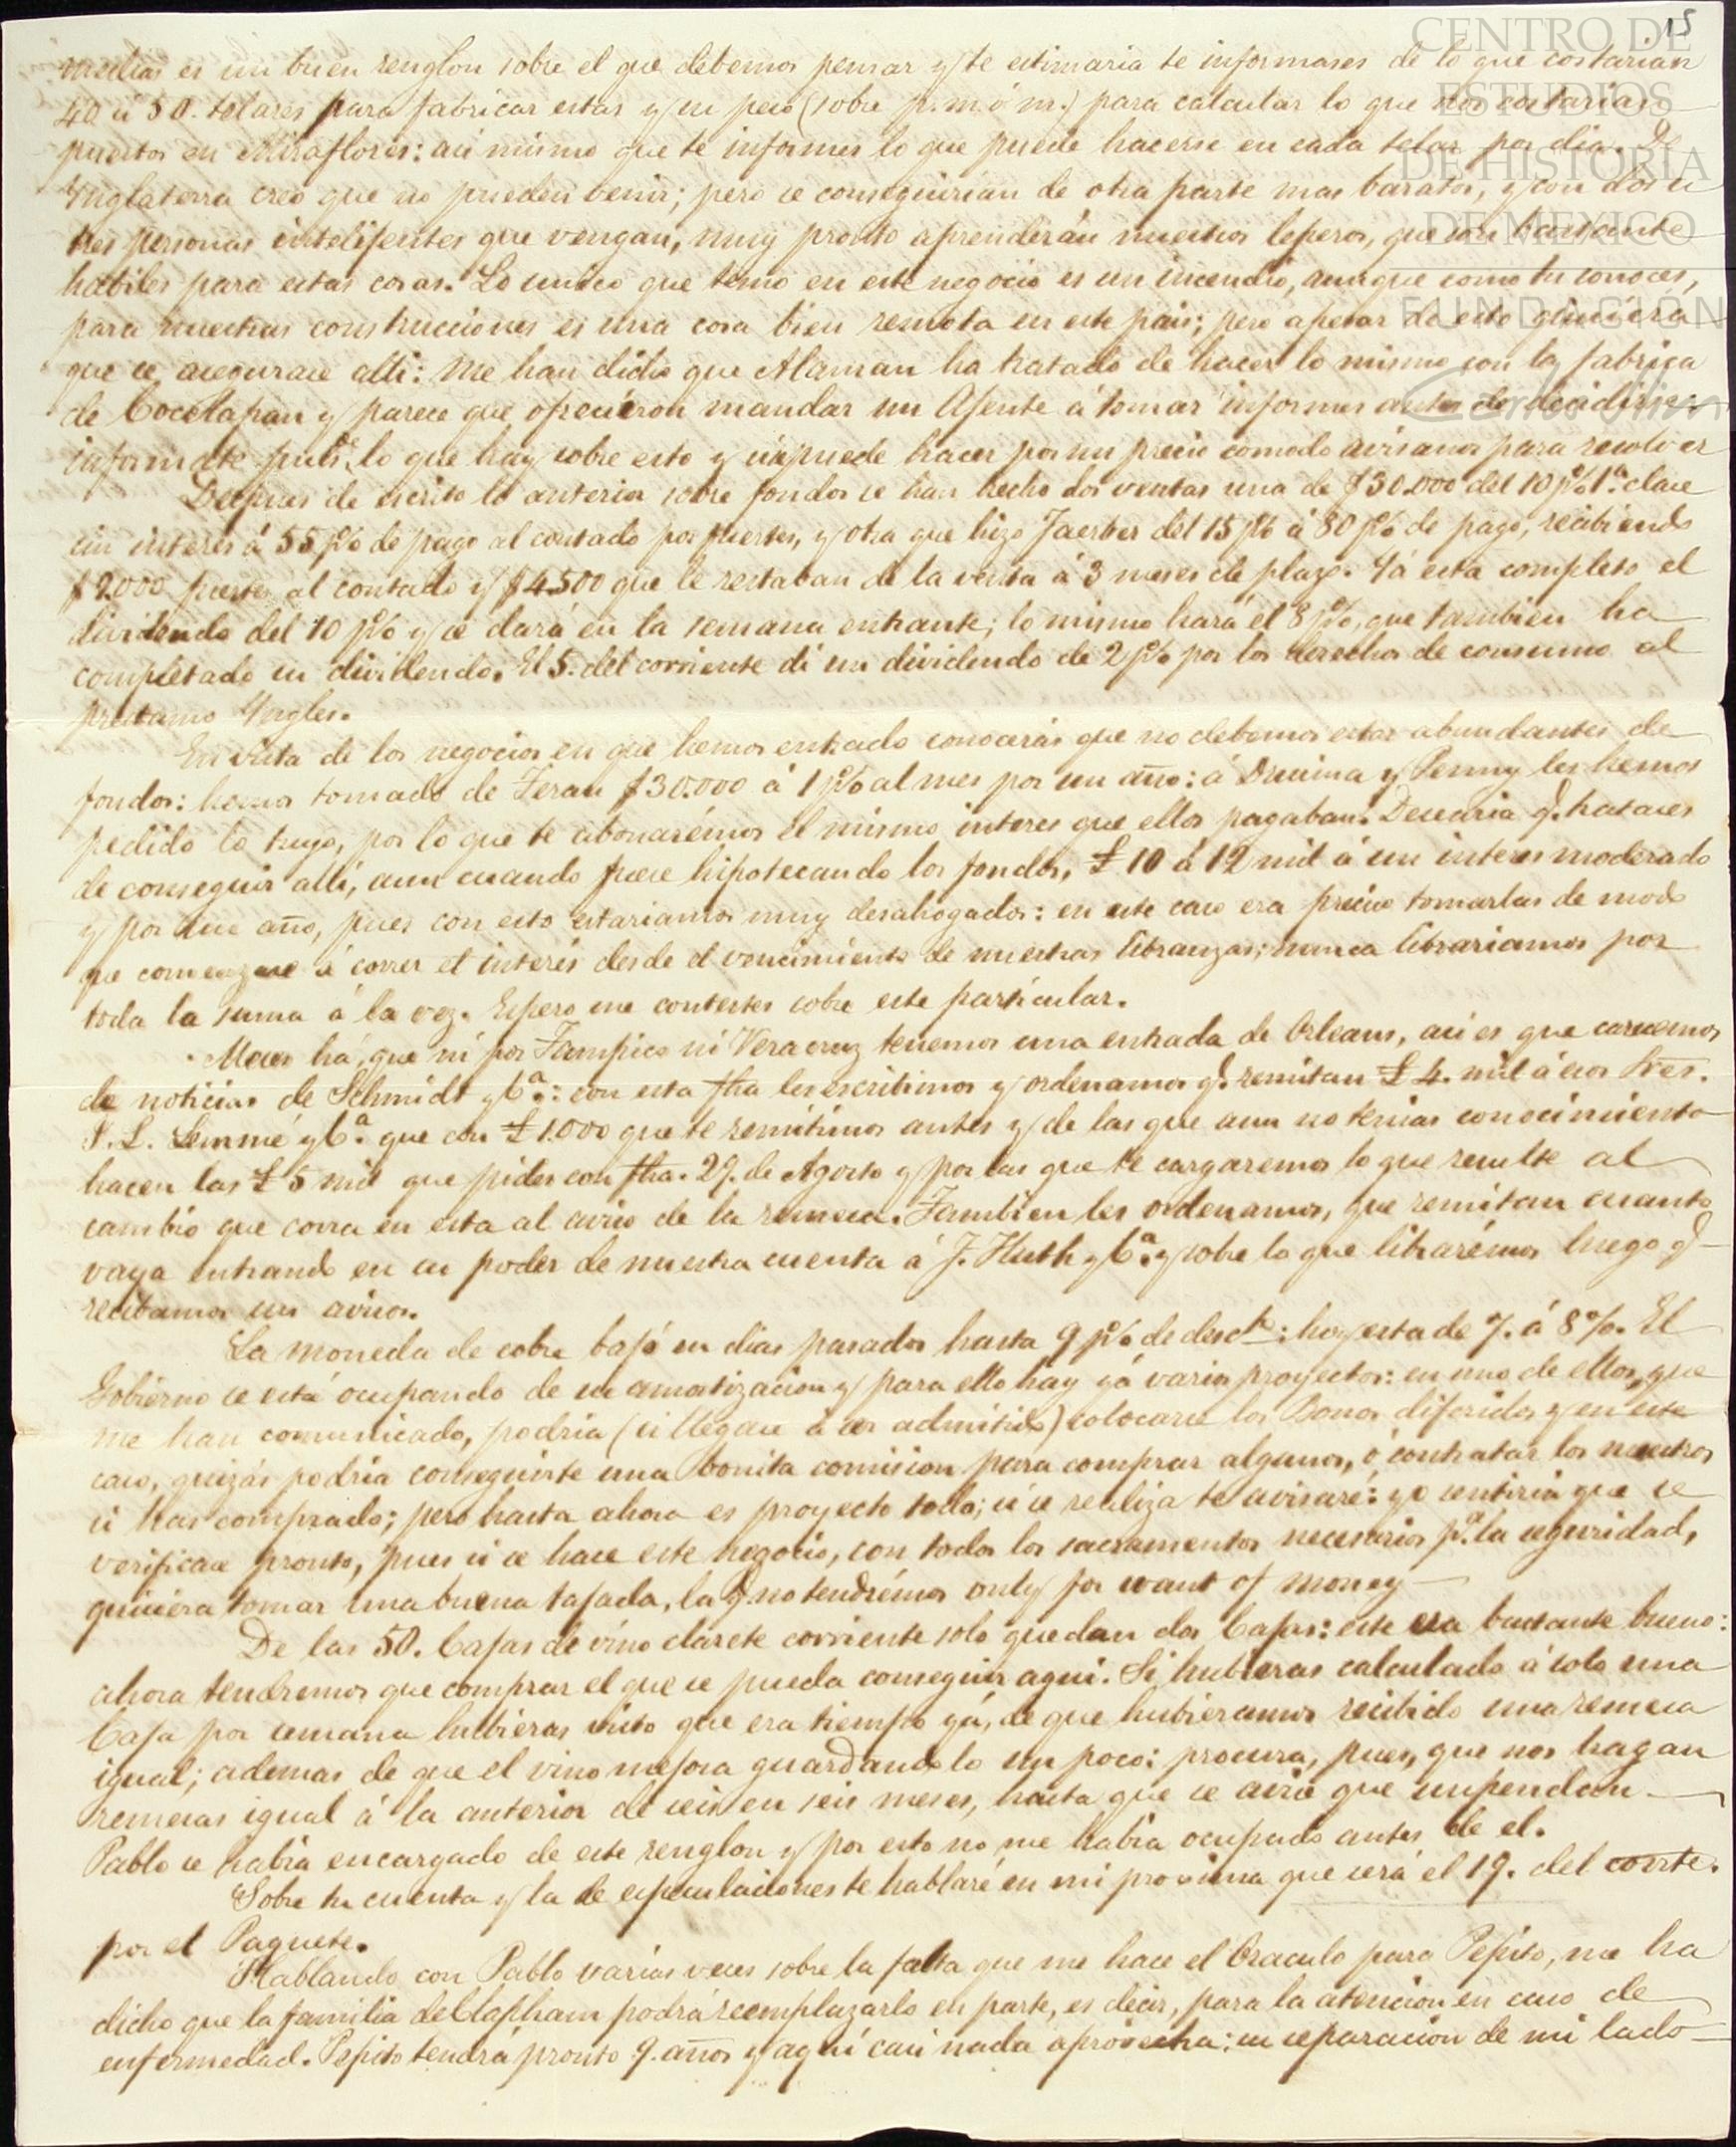 15
CENTRO DE
ESTUDIOS
DE HISTORIA
DE MEXICO
FUNDACIÓN
Carlos Slim
medias es un buen renglon sobre el que debemos pensar y te estimaria te informases de lo que costarian
40 ú 50. telares para fabricar estas y su peso (sobre p. m. ó m.) para calcular lo que nos costarian
puestos en Miraflores: asi mismo que te informes lo que puede hacerse en cada telar por dia. De
Ynglaterra creo que no pueden venir; pero se conseguirian de otra parte mas baratos, y con dos u
tres personas intelijentes que vengan, muy pronto aprenderán nuestros leperos, que son bastante
habiles para estas cosas. Lo unico que temo en este negocio es un incendio, aunque como tu conoces,
para nuestras construcciones es una cosa bien remota en este pais; pero apesar de esto quisiera
que se asegurase alli: me han dicho que Alaman ha tratado de hacer lo mismo con la fabrica
de Cocolapan y parece que ofrecieron mandar un Ajente á tomar informes antes de decidirse
informate pues, de lo que hay sobre esto y si se puede hacer por un precio comodo avisanos para resolver
Despues de escrito lo anterior sobre fondos se han hecho dos ventas una de $30.000 del 10 p% 1ª. clase
sin interes á 55 p% de pago al contado por fuertes, y otra que hizo Faerber del 15 p% á 80 p% de pago, recibiendo
$2.000 fuertes al contado y $4.500 que le restaban de la venta á 3 meses de plazo. Yá está completo el
dividendo del 10 p% y se dará en la semana entrante; lo mismo hará el 8 p%, que tambien ha
completado su dividendo. El 5. del corriente di un dividendo de 2 p% por los derechos de consumo al
prestamo Yngles.
En vista de los negocios en que hemos entrado conocerás que no debemos estar abundantes de
fondos: hemos tomado de Teran $30.000 á 1 p% al mes por un año: á Drusina y Penny les hemos
pedido lo tuyo, por lo que te abonarémos el mismo interes que ellos pagaban. Desearia q. tratases
de conseguir allí, aun cuando fuese hipotecando los fondos, £ 10 á 12 mil á un interes moderado
y por un año, pues con esto estariamos muy desahogados: en este caso era preciso tomarlas de modo
que comenzase á correr el interés desde el vencimiento de nuestras libranzas; nunca librariamos por
toda la suma á la vez. Espero me contestes sobre este particular.
Meses há, que ni por Tampico ni Veracruz tenemos una entrada de Orleans, asi es que carecemos
de noticias de Schmidt y Cª.: con esta fha les escribimos y ordenamos q. remitan £ 4. mil á esos Sres.
F. L. Lemmé y Cª. que con £ 1.000 que te remitimos antes y de las que aun no tenias conocimiento
hacen las £ 5 mil que pides con fha. 29. de Agosto y por las que te cargaremos lo que resulte al
cambio que corra en esta al aviso de la remesa. Tambien les ordenamos, que remitan cuanto
vaya entrando en su poder de nuestra cuenta á F. Huth y Cª. y sobre lo que librarémos luego q.
recibamos sus avisos.
La moneda de cobre bajó en dias pasados hasta 9 p% de descto.: hoy esta de 7. á 8 %. El
Gobierno se está ocupando de su amortizacion y para ello hay yá varios proyectos: en uno de ellos, que
me han comunicado, podria (si llegase á ser admitido) colocarse los Bonos diferidos y en este
caso, quizás podria conseguirte una bonita comision para comprar algunos, ó contratar los nuestros
si has comprado; pero hasta ahora es proyecto todo; si se realiza te avisaré: yo sentiria que se
verificase pronto, pues si se hace este negocio, con todos los sacramentos necesarios pª. la seguridad,
quisiera tomar una buena tajada, la q. no tendrémos only for want of money
De las 50. Cajas de vino clarete corriente solo quedan dos Cajas: este era bastante bueno:
ahora tendremos que comprar el que se pueda conseguir aqui. Si hubieras calculado á solo una
Caja por semana hubieras visto que era tiempo yá, de que hubieramos recibido una remesa
igual; ademas de que el vino mejora guardandolo un poco: procura, pues, que nos hagan
remesas igual á la anterior de seis en seis meses, hasta que se avise que suspendan.
Pablo se habia encargado de este renglon y por esto no me habia ocupado antes de el.
Sobre tu cuenta y la de especulaciones te hablaré en mi proxima que será el 19. del corrte.
por el Paquete.
Hablando con Pablo varias veces sobre la falta que me hace el Oraculo para Pepito, me ha
dicho que la familia de Clapham podrá reemplazarlo en parte, es decir, para la atencion en caso de
enfermedad. Pepito tendrá pronto 9. años y aquí casi nada aprovecha: su separacion de mi lado